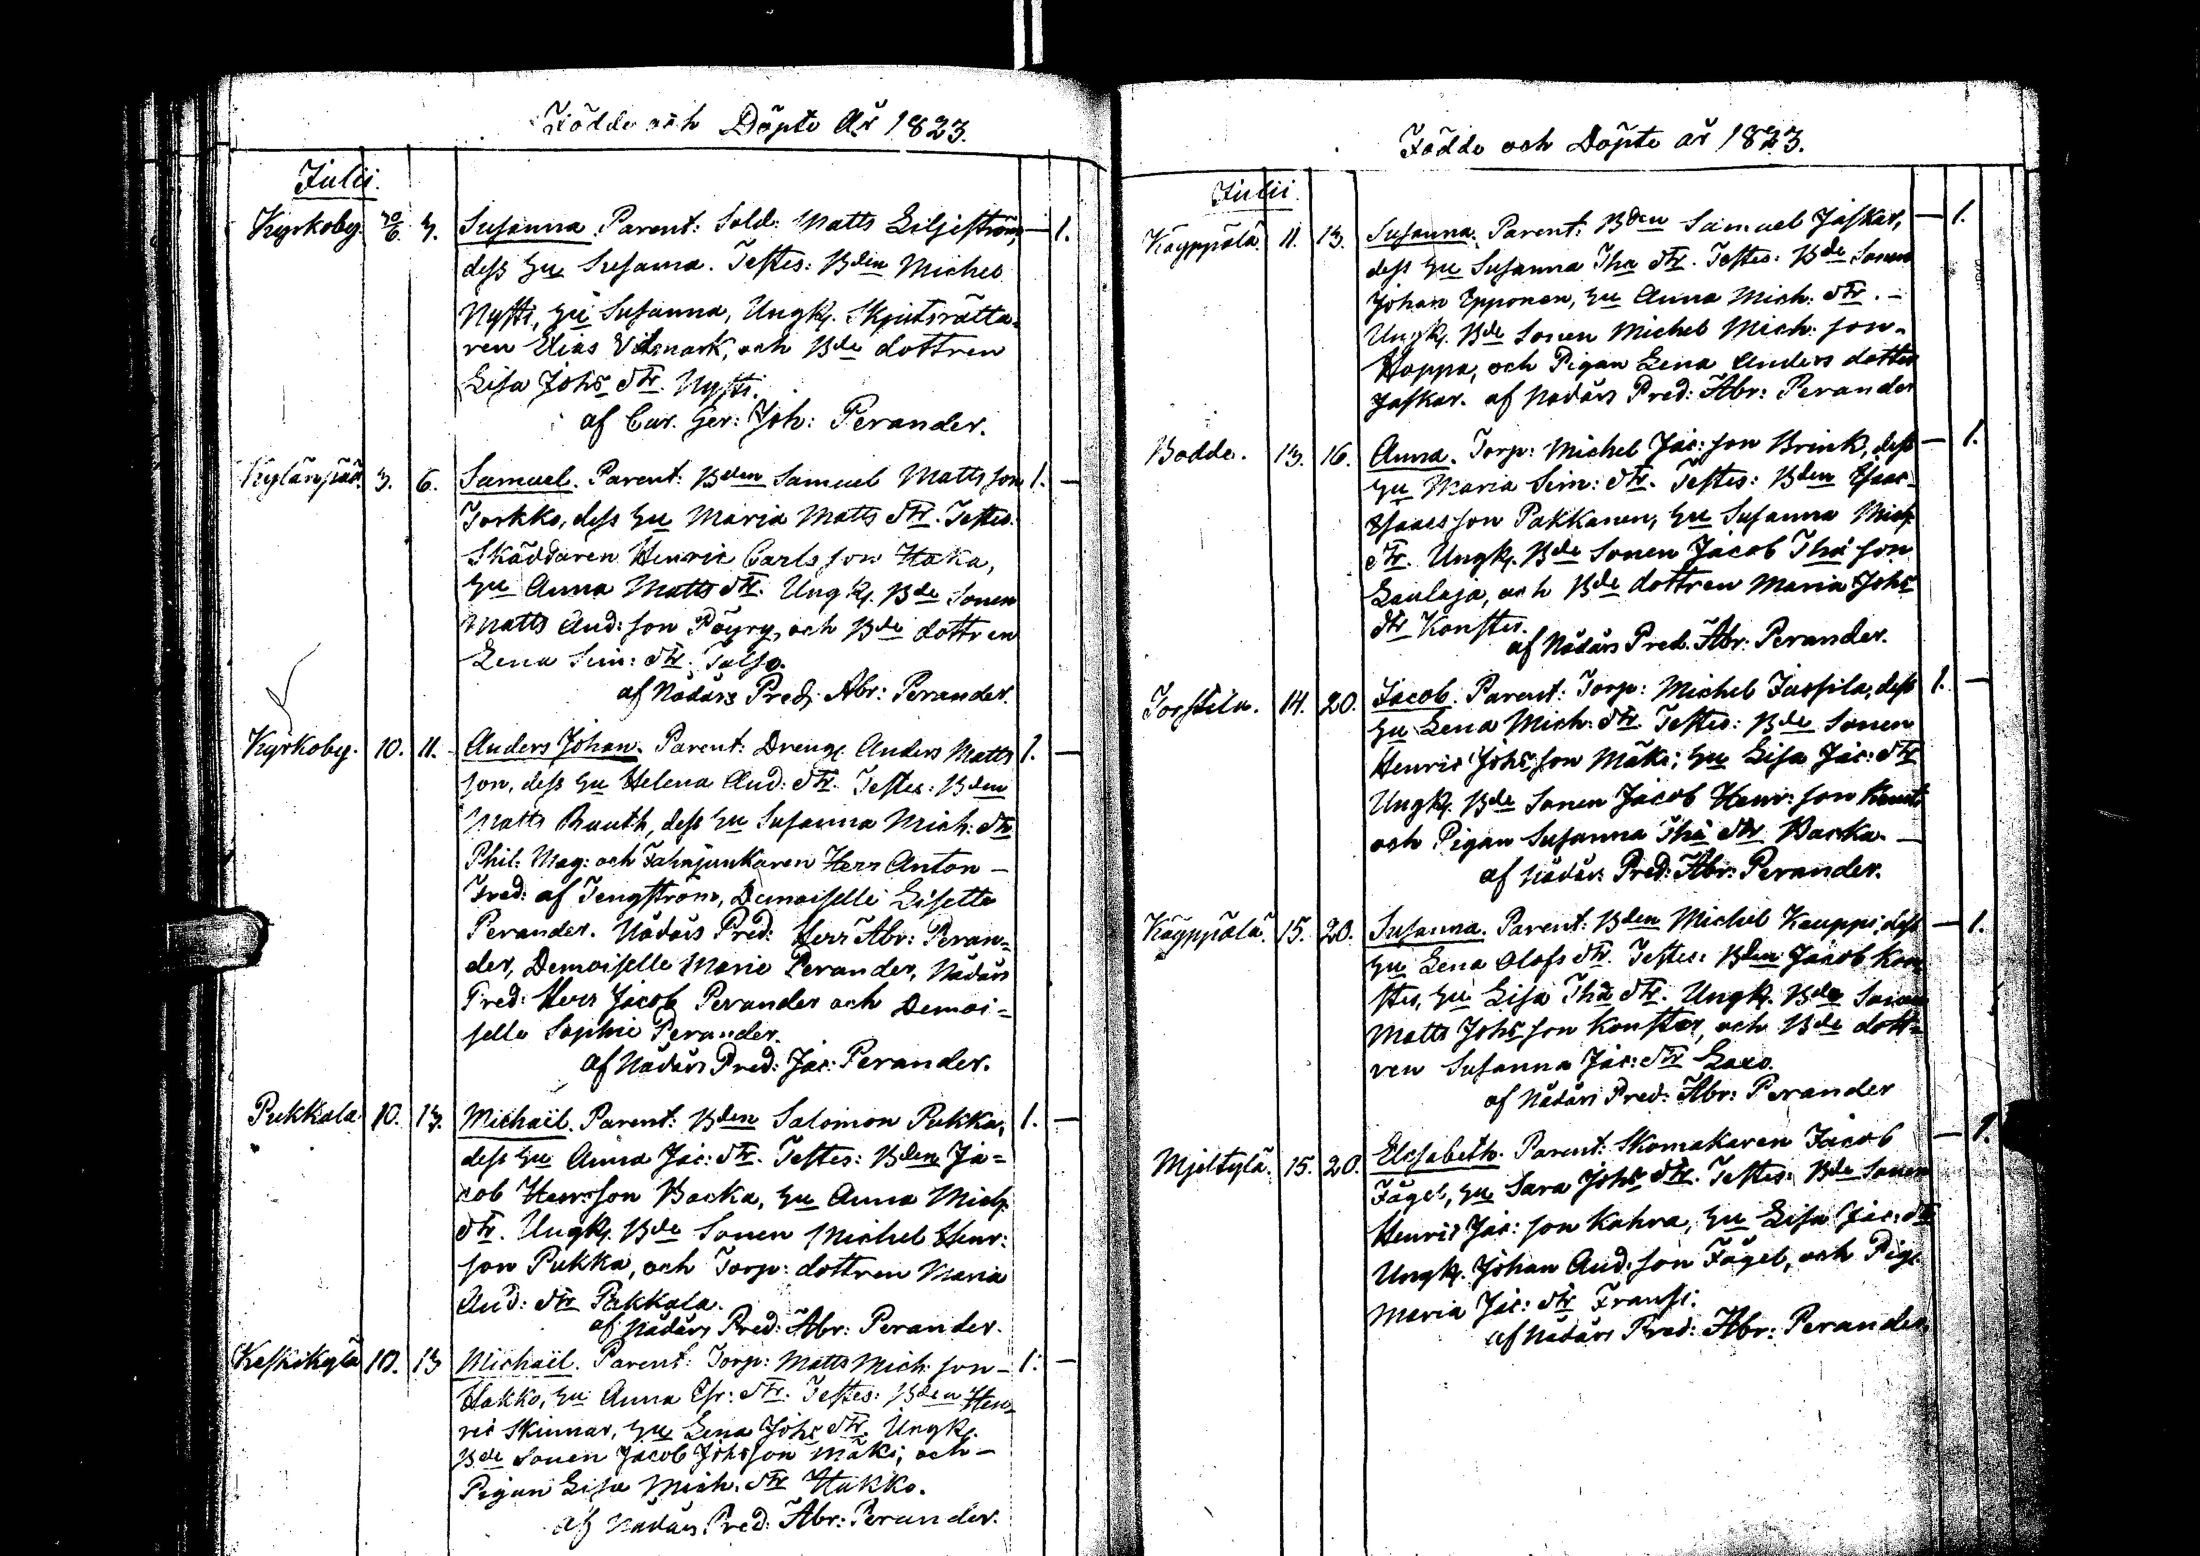 Födde och Döpte År 1823.
Julii.
Kyrkoby. 30/6. 3. Susanna. Parent: Sold: Matts Liljeström, — 1.
dess Hu Susanna. Testes: Bden Michel
Nysti, Hu Susanna, Ungk. Skjutsrätta-
ren Elias Vidmark, och Bde dottren
Lisa Johs dtr. Nysti.
af Cur. Ger: Joh: Perander.
Kylänpää. 3. 6. Samuel. Parent: Bden Samuel Matts son 1. —
Torkko, dess Hu Maria Matts dtr. Testes.
Skäddaren Henric Carls son Haka,
Hu Anna Matts dtr. Ungk. Bde Sonen
Matts And: son Pöyry, och Bde dottren
Lena Sim: dtr.
af Nådårs Pred: Abr: Perander.
Kyrkoby. 10. 11. Anders Johan. Parent: Dreng. Anders Matts 1. —
son, dess Hu Helena And: dtr. Testes: Bden
Matts Rauth, dess Hu Susanna Mich: dtr
Phil: Mag: och Fahnjunkaren Herr Anton —
Fred: af Tengström, Demoiselle Lisette
Perander. Nådårs Pred: Herr Abr: Peran=
der, Demoiselle Marie Perander, Nådårs
Pred: Herr Jacob Perander och Demoi=
selle Sophie Perander.
af Nådårs Pred: Jac: Perander.
Pukkala 10. 13. Michaël. Parent: Bden Salomon Pukka, 1. —
dess Hu Anna Jac: dtr. Testes: Bden Ja=
cob Henr: son Backa, Hu Anna Mich:
dtr. Ungk. Bde Sonen Michel Henr:
son Pukka, och Torp: dottren Maria
And: dtr Pukkala.
af Nådårs Pred: Abr: Perander.
Keskikylä 10. 13 Michaël. Parent: Torp: Matts Mich: son — 1. —
Hakko, Hu Anna Esr: dtr. Testes: Bden Hen=
ric Skinnar, Hu Lena Johs dtr. Ungk.
Bde Sonen Jacob Johs son Mäki, och —
Pigan Lisa Mich. dtr Hakko.
af Nådårs Pred: Abr: Perander.
Födde och Döpte år 1823.
Julii.
Käyppälä 11. 13. Susanna. Parent: Bden Samuel Jaskar, — 1.
dess Hu Susanna Tha dtr. Testes: Bde Sonen
Johan Epponen, Hu Anna Mich: dtr. —
Ungk. Bde Sonen Michel Mich: son —
Hoppa, och Pigan Lena Anders dotter
Jaskar. af Nådårs Pred: Abr: Perander
Bodde. 13. 16. Anna. Torp: Michel Jac: son Brink, dess — 1.
Hu Maria Sim: dtr. Testes: Bden Isaac
Isaacs son Pakkanen, Hu Susanna Mich
dtr. Ungk. Bde Sonen Jacob Tha son
Laulaja, och Bde dottren Maria Johs
dtr Konster.
af Nådårs Pred. Abr: Perander.
Torstila. 14. 20. Jacob. Parent: Torp: Michel Jussila, dess 1. —
Hu Lena Mich: dtr. Testes: Bde Sonen
Henric Johs son Mäki, Hu Lisa Jac: dtr
Ungk. Bde Sonen Jacob Henr: son
och Pigan Susanna Tha dtr Backa. —
af Nådårs Pred: Abr: Perander.
Käyppälä. 15. 20. Susanna. Parent: Bden Michel Kauppi, dess — 1.
Hu Lena Olofs dtr. Testes: Bden Jacob Kon
ster, Hu Lisa Tha dtr. Ungk. Bde Sonen
Matts Johs son Konster, och Bde dott=
ren Susanna Jac: dtr Laxo.
af Nådårs Pred: Abr: Perander
Mjeltylä. 15. 20. Elisabeth. Parent: Skomakaren Jacob — 1.
Fågel, Hu Sara Johs dtr. Testes: Bde Sonen
Henric Jac: son Kahra, Hu Lisa Jac: dtr
Ungk. Johan And: son Fågel, och Pig.
Maria Jac: dtr Fransi.
af Nådårs Pred: Abr: Perander.